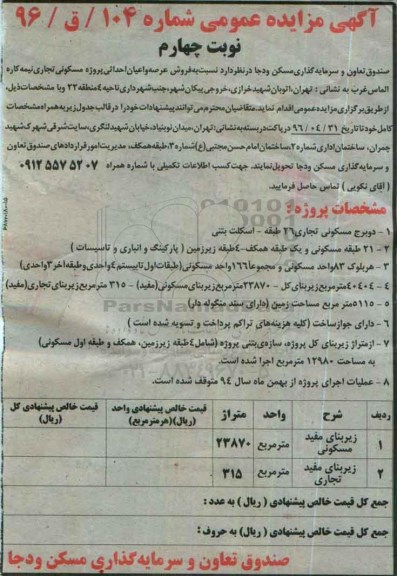 آگهی مزایده عمومی شماره ۱۰۴ / ق / ۹۶
نوبت چهارم
صندوق تعاون و سرمایه گذاری مسکن ودجا در نظر دارد نسبت به فروش عرصه واعیان احداثی پروژه مسکونی تجاری نیمه کاره
الماس غرب به نشانی : تهران، اتوبان شهید خرازی، خروجی پیکان شهر، جنب شهرداری ناحیه ۴ منطقه ۲۲ وبا مشخصات ذیل،
از طریق برگزاری مزایده عمومی اقدام نماید. متقاضیان محترم می توانند پیشنهادات خود را در قالب جدول زیر به همراه مشخصات
کامل خود تا تاریخ ۳۱ / ۰۴ / ۹۶ در پاکت دربسته به نشانی: تهران، میدان نوبنیاد، خیابان شهید لنگری، سایت شرقی شهرک شهید
چمران، ساختمان اداری شماره ۲، ساختمان امام حسن مجتبی (ع) شماره ۳، طبقه همکف، مدیریت امور قراردادهای صندوق تعاون
و سرمایه گذاری مسکن ودجا تحویل نمایند. جهت کسب اطلاعات تکمیلی با شماره همراه ۰۹۱۲ ۵۵۷ ۵۲ ۰۷
( آقای نکویی ) تماس حاصل فرمایید.
مشخصات پروژه :
۱ - دو برج مسکونی تجاری ۲۶ طبقه - اسکلت بتنی
۲ - ۲۱ طبقه مسکونی و یک طبقه همکف - ۴ طبقه زیرزمین ( پارکینگ و انباری و تاسیسات )
۳ - هر بلوک ۸۳ واحد مسکونی و مجموعاً ۱۶۶ واحد مسکونی (طبقات اول تا بیستم ۴ واحدی و طبقه آخر ۳ واحدی)
۴ - ۴۰۴۰۴ متر مربع زیربنای کل - ۲۳۸۷۰ متر مربع زیربنای مسکونی (مفید) - ۳۱۵ متر مربع زیربنای تجاری (مفید)
۵ - ۵۱۱۵ متر مربع مساحت زمین (دارای سند منگوله دار)
۶ - دارای جواز ساخت (کلیه هزینه های تراکم پرداخت و تسویه شده است )
۷ - از متراژ زیربنای کل پروژه، سازه ی بتنی پروژه (شامل ۴ طبقه زیرزمین، همکف و طبقه اول مسکونی)
به مساحت ۱۲۹۸۰ متر مربع اجرا شده است.
۸ - عملیات اجرای پروژه از بهمن ماه سال ۹۴ متوقف شده است.
ردیف شرح واحد متراژ قیمت خالص پیشنهادی واحد (ریال) (هر متر مربع) قیمت خالص پیشنهادی کل (ریال)
۱ زیربنای مفید مسکونی متر مربع ۲۳۸۷۰
۲ زیربنای مفید تجاری متر مربع ۳۱۵
جمع کل قیمت خالص پیشنهادی ( ریال ) به عدد :
جمع کل قیمت خالص پیشنهادی ( ریال ) به حروف :
صندوق تعاون و سرمایه گذاری مسکن ودجا